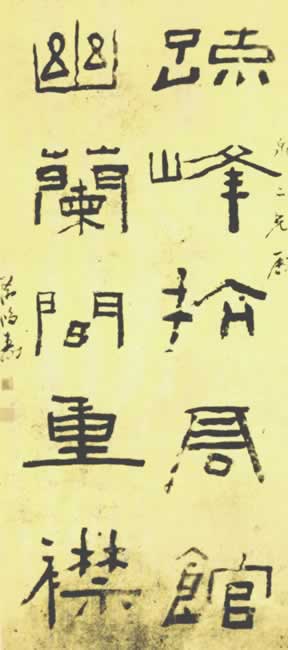 疎峰抗高館
二兄屬
幽蘭間重襟
鴻壽